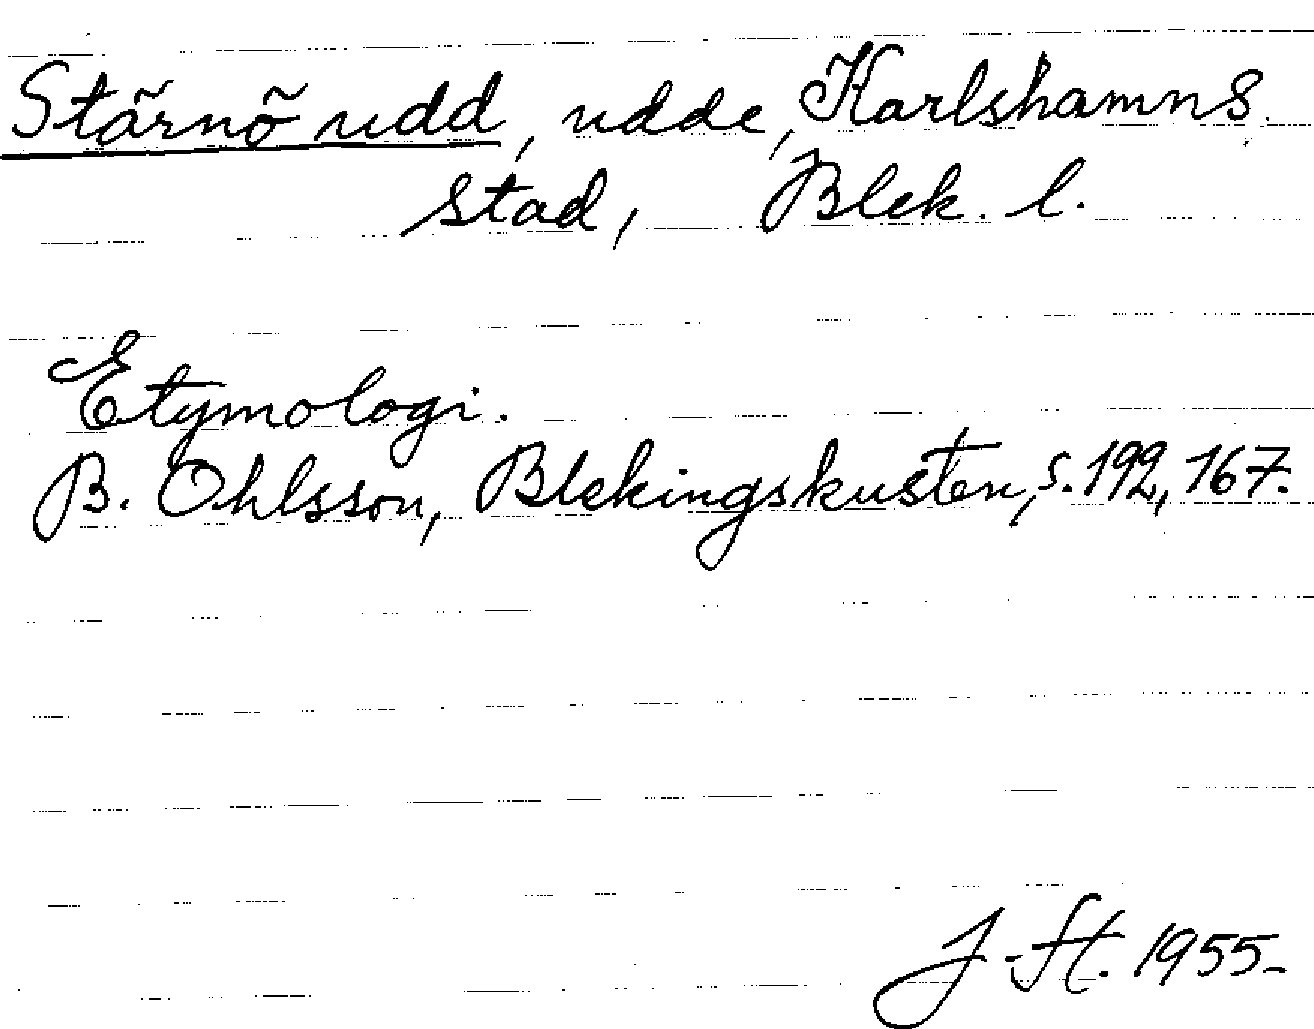 Stärnö udd, udde, Karlshamns
stad, Blek. l.
Etymologi.
B. Ohlsson, Blekingskusten, s. 192, 167.
J-St. 1955-